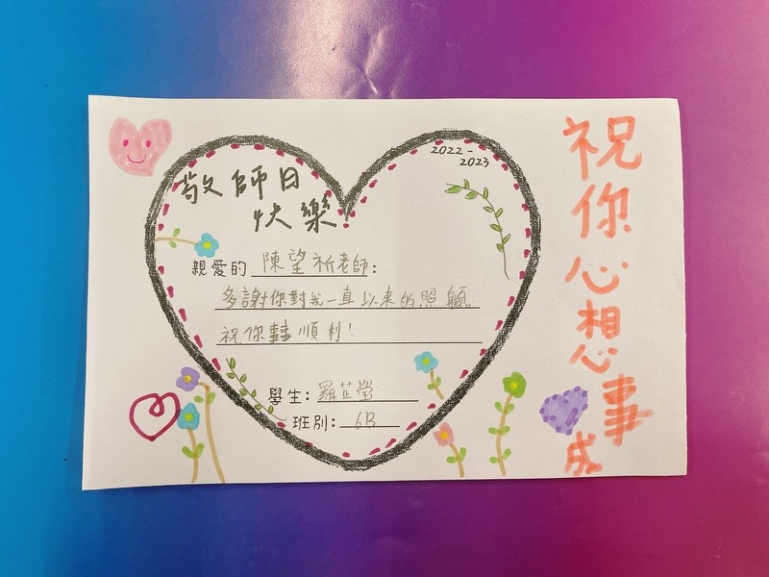 2022-
2023
敬師日
快樂
親愛的 陳望祈老師:
多謝你對我一直以來的照顧。
祝你事事順利!
學生: 羅芷瑩
班別: 6B
祝你心想事成